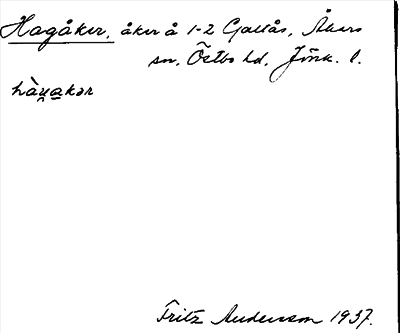 Hagåker, åker å 1-2 Gallås, Åkers
sn, Östbo hd, Jönk. l.
hàu̯a̲kər
Fritz Andersson 1937.